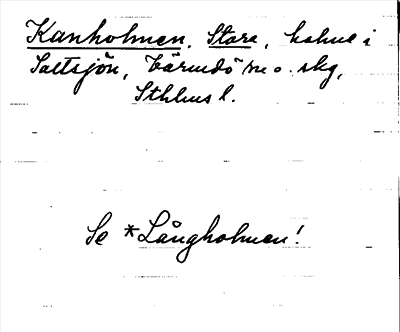 Kanholmen, Stora, holme i
Saltsjön, Värmdö sn o. skg,
Sthlms l.
Se *Långholmen!